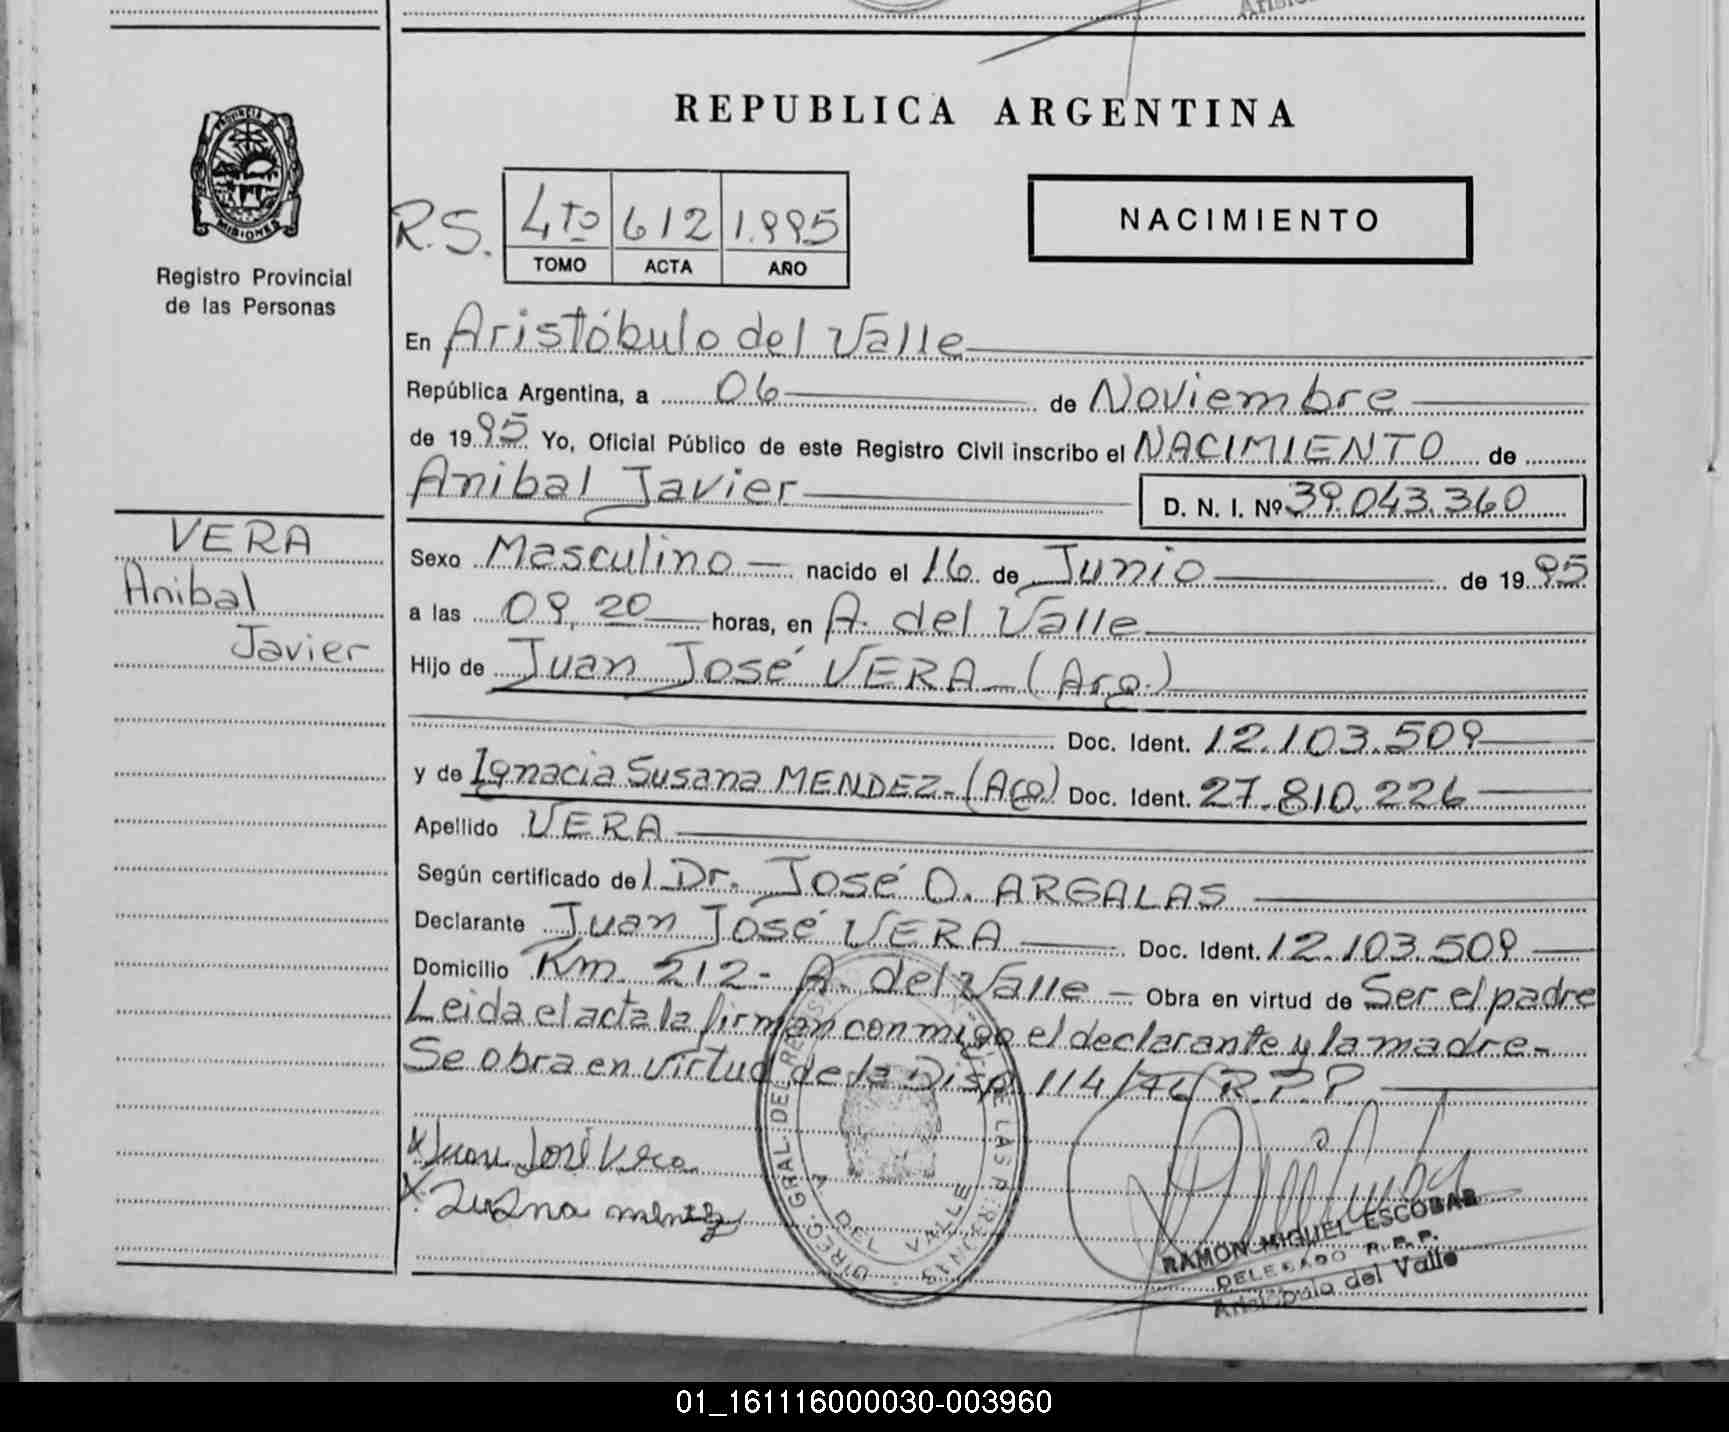 REPUBLICA ARGENTINA
PROVINCIA DE
MISIONES
Registro Provincial
de las Personas
R.S. 4to 612 1.995
TOMO ACTA AÑO
NACIMIENTO
En Aristóbulo del Valle
República Argentina, a 06 de Noviembre
de 1995 Yo, Oficial Público de este Registro Civil inscribo el NACIMIENTO de
Anibal Javier D. N. I. Nº 39.043.360
VERA
Anibal
Javier
Sexo Masculino nacido el 16 de Junio de 1995
a las 09,20 horas, en A. del Valle
Hijo de Juan José VERA (Arg.)
Doc. Ident. 12.103.509
y de Ignacia Susana MENDEZ - (Arg) Doc. Ident. 27.810.226
Apellido VERA
Según certificado del Dr. José O. ARGALAS
Declarante Juan José VERA Doc. Ident. 12.103.509
Domicilio Km. 212 - A. del Valle Obra en virtud de Ser el padre
Leida el acta la firman conmigo el declarante y la madre -
Se obra en virtud de la Disp. 114/76 R.P.P.
x Juan José Vera
x Susana mendez
DIREC. GRAL. DEL REG
DE LAS PERS
A. DEL VALLE
RAMON MIGUEL ESCOBAR
DELEGADO R. P. P.
Aristóbulo del Valle
01_161116000030-003960